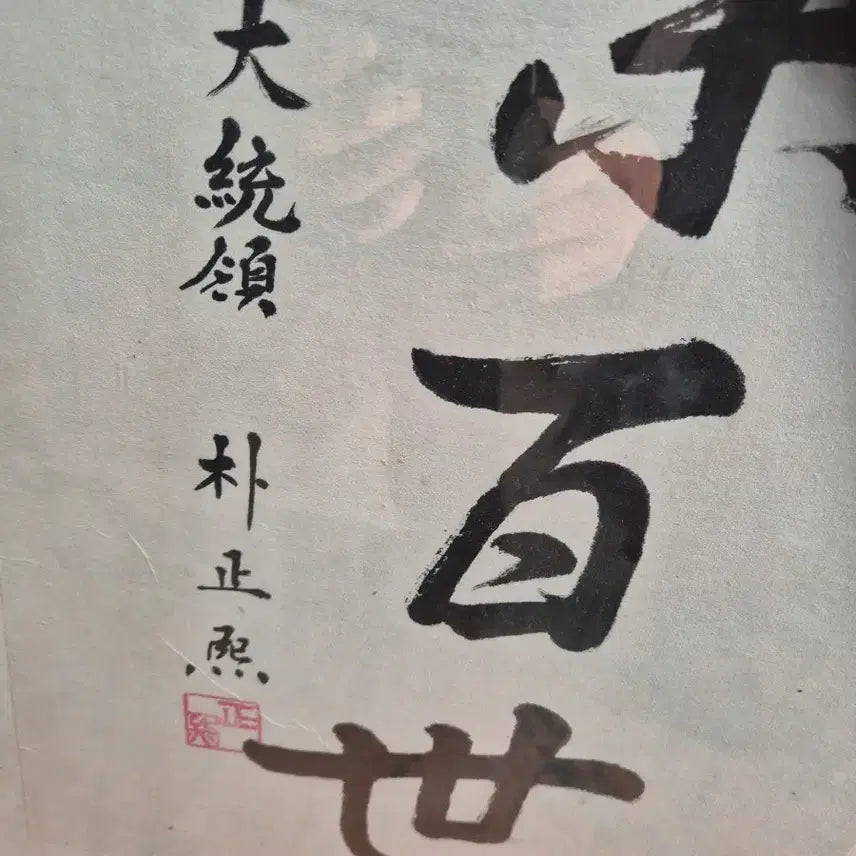 百世
大統領 朴正熙